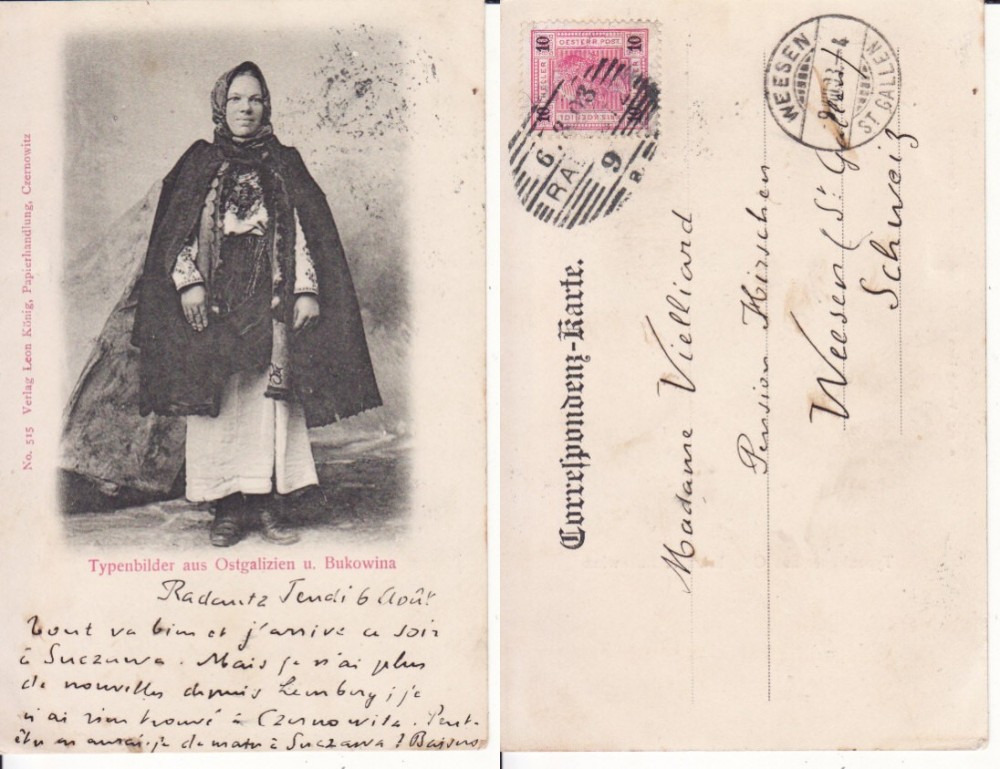 No. 515 Verlag Leon König, Papierhandlung, Czernowitz
Typenbilder aus Ostgalizien u. Bukowina
Radautz Jeudi 6 Août
Tout va bien et j'arrive ce soir
à Suczawa. Mais je n'ai plus
de nouvelles depuis Lemberg ; je
n'ai rien trouvé à Czernowitz. Peut-
être en aurai-je demain à Suczawa ? Baisers
10 OESTERR. POST 10
HELLER HELLER
10 10
6. 03
RA
9
a.
WEESEN
ST GALLEN
Correspondenz-Karte.
Madame Vielliard
Pension Hirschen
Weesen (St Gallen)
Schweiz